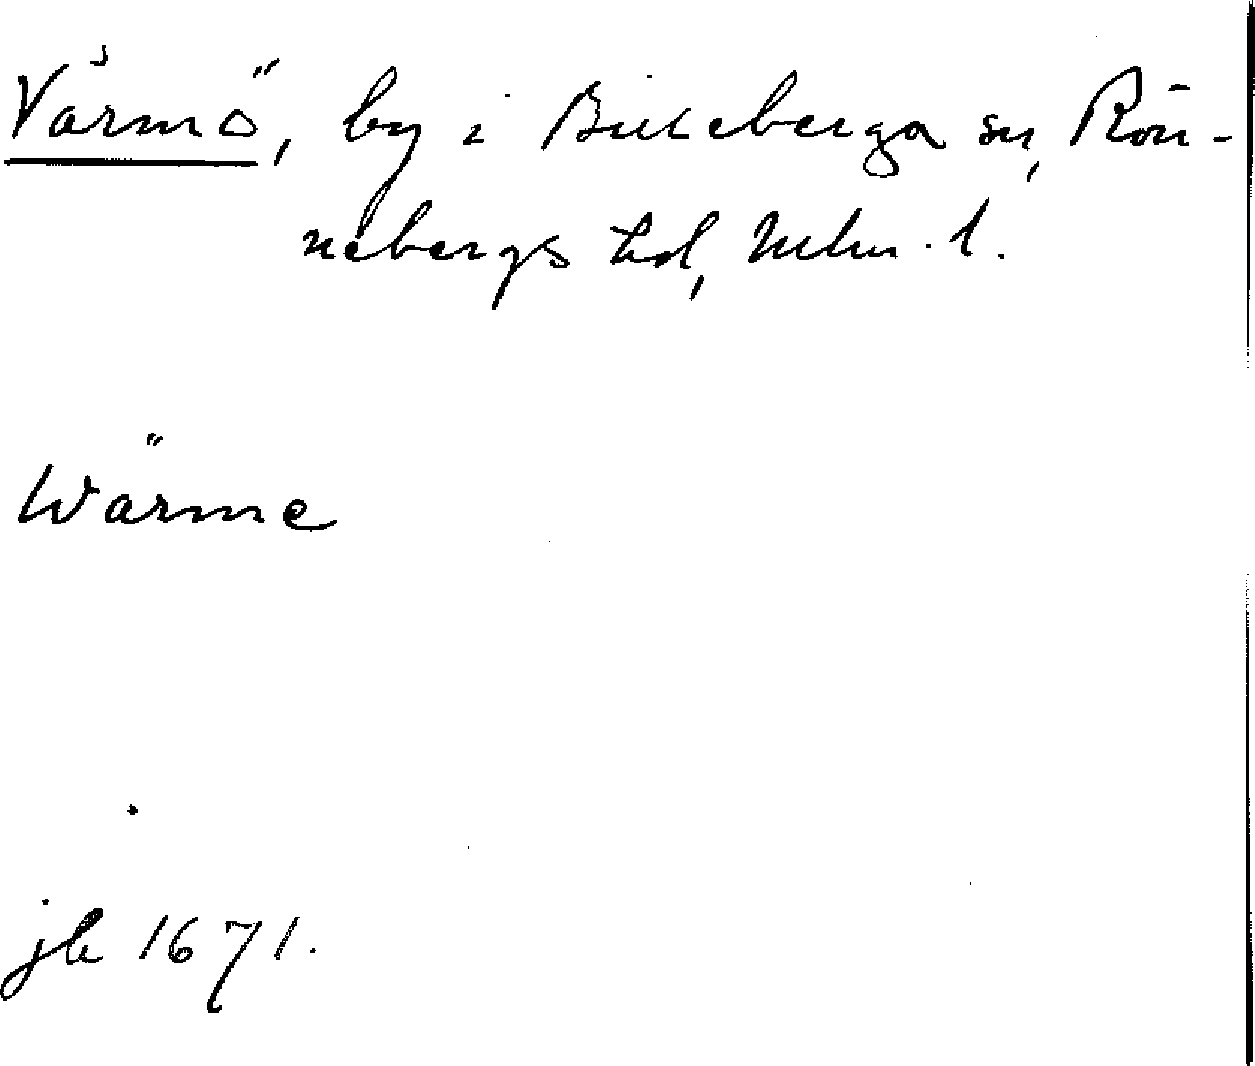 Värmö, by i Billeberga sn, Rön-
nebergs hd, Malm. l.
Wärme
jb 1671.